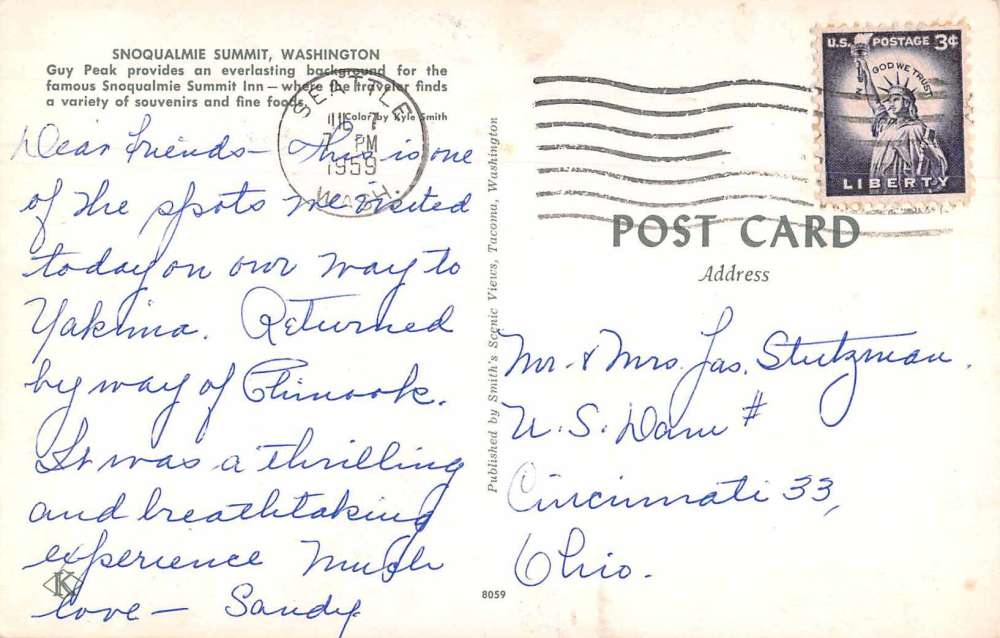 SNOQUALMIE SUMMIT, WASHINGTON
Guy Peak provides an everlasting background for the
famous Snoqualmie Summit Inn — where the traveler finds
a variety of souvenirs and fine foods.
Color by Kyle Smith
Dear Friends — This is one
of the spots we visited
today on our way to
Yakima. Returned
by way of Chinook.
It was a thrilling
and breathtaking
experience Much
love — Sandy
K
SEATTLE
7
PM
1959
WASH.
Published by Smith's Scenic Views, Tacoma, Washington
8059
U.S. POSTAGE 3¢
IN GOD WE TRUST
LIBERTY
POST CARD
Address
Mr. & Mrs. Jas. Stutzman.
U.S. Dam #
Cincinnati 33,
Ohio.